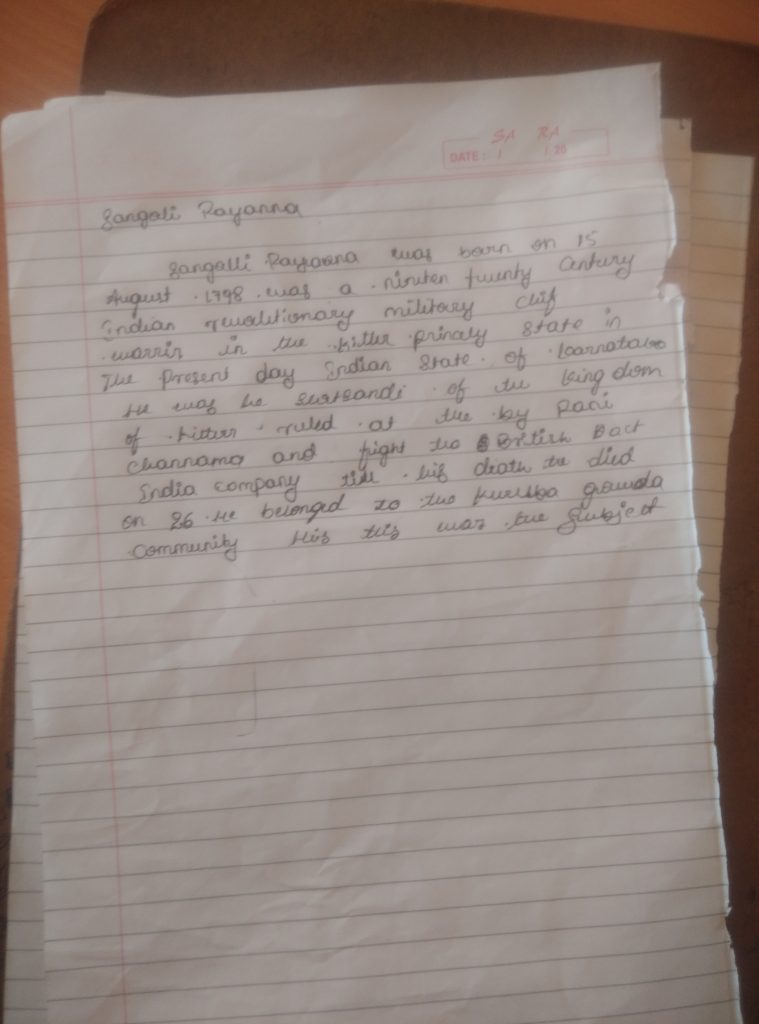 SA RA
DATE: / / 20
Sangoli Rayanna
Sangolli Rayaana was born on 15
August 1798 was a nineten twenty Century
Indian revolutionary military chif
warrir in the kitter princly State in
The Present day Indian State of karnataka
He was he of the king dom
of kitter ruled at the by Rani
Channama and fight the British East
India company till his death te died
on 26 He belonged to the kuruba gowda
Community His this was the Subject